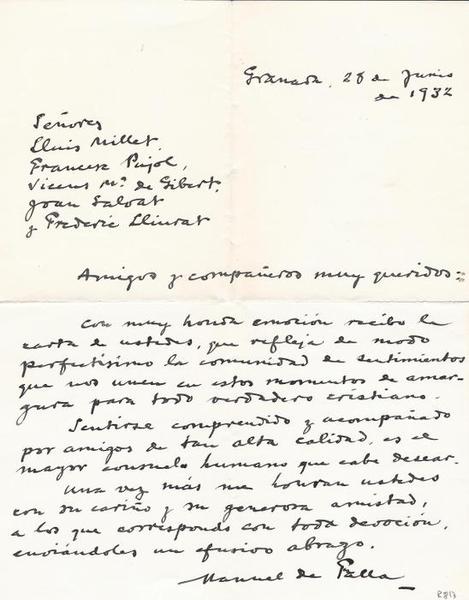 Granada, 28 de Junio
de 1932
Señores
Lluis Millet,
Francesc Pujol,
Vicens Mª de Gibert,
Joan Salvat
y Frederic Lliurat
Amigos y compañeros muy queridos:
Con muy honda emoción recibo la
carta de ustedes, que refleja de modo
perfectísimo la comunidad de sentimientos
que nos unen en estos momentos de amar-
gura para todo verdadero cristiano.
Sentirse comprendido y acompañado
por amigos de tan alta calidad, es el
mayor consuelo humano que cabe desear.
Una vez más me honran ustedes
con su cariño y su generosa amistad,
a los que correspondo con toda devoción,
enviándoles un efusivo abrazo.
Manuel de Falla